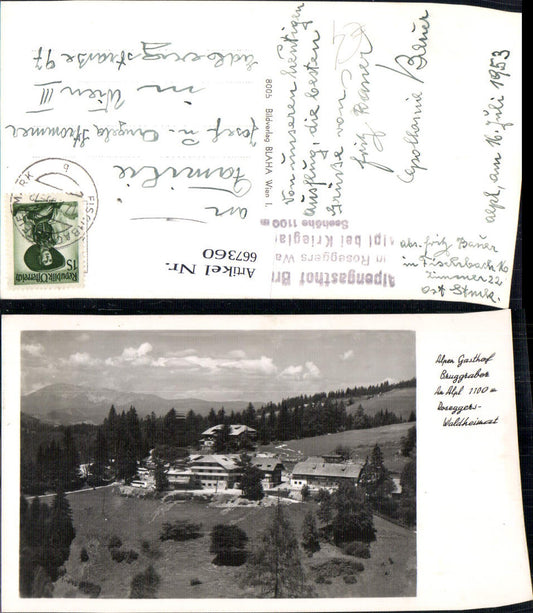 an
Familie
Josef u. Angela Krommer
in Wien III
Erdbergstraße 97
8005 Bildverlag BLAHA Wien I.
Von unserem heutigen
Ausflug, die besten
Grüße von
Fritz Bauer
Apollonia Bauer
Alpl, am 16. Juli 1953
abs. Fritz Bauer
in Fischbach
Zimmer 22
Ost Stmk.
Alpengasthof Bru
in Roseggers Wa
Alpl bei Krieglac
Seehöhe 1100 m
Artikel Nr.
667360
FISCHBACH
MARK
Republik Österreich
1S
Alpen Gasthof
Bruggraber
Am Alpl 1100 m
Roseggers-
Waldheimat